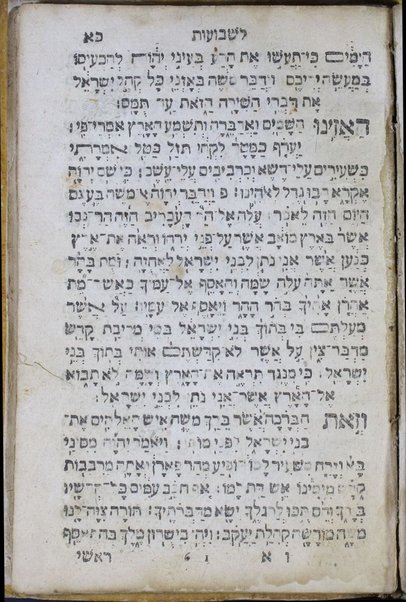 לשבועות כא
הימים כי תעשו את הרע בעיני יהוה להכעיסו
במעשה ידיכם׃ וידבר משה באזני כל קהל ישראל
את דברי השירה הזאת עד תמם׃
האזינו השמים ואדברה ותשמע הארץ אמרי פי׃
יערף כמטר לקחי תזל כטל אמרתי
כשעירים עלי דשא וכרביבים עלי עשב׃ כי שם יהוה
אקרא הבו גדל לאלהינו׃ פ וידבר יהוה אל משה בעצם
היום הזה לאמר׃ עלה אל הר העברים הזה הר נבו
אשר בארץ מואב אשר על פני ירחו וראה את ארץ
כנען אשר אני נתן לבני ישראל לאחזה׃ ומת בהר
אשר אתה עלה שמה והאסף אל עמיך כאשר מת
אהרן אחיך בהר ההר ויאסף אל עמיו׃ על אשר
מעלתם בי בתוך בני ישראל במי מריבת קדש
מדבר צין על אשר לא קדשתם אותי בתוך בני
ישראל׃ כי מנגד תראה את הארץ ושמה לא תבוא
אל הארץ אשר אני נתן לבני ישראל׃
וזאת הברכה אשר ברך משה איש האלהים את
בני ישראל לפני מותו׃ ויאמר יהוה מסיני
בא וזרח משעיר למו הופיע מהר פארן ואתה מרבבות
קדש מימינו אש דת למו׃ אף חבב עמים כל קדשיו
בידך והם תכו לרגלך ישא מדברתיך׃ תורה צוה לנו
משה מורשה קהלת יעקב׃ ויהי בישרון מלך בהתאסף
ו א 6 1 ראשי